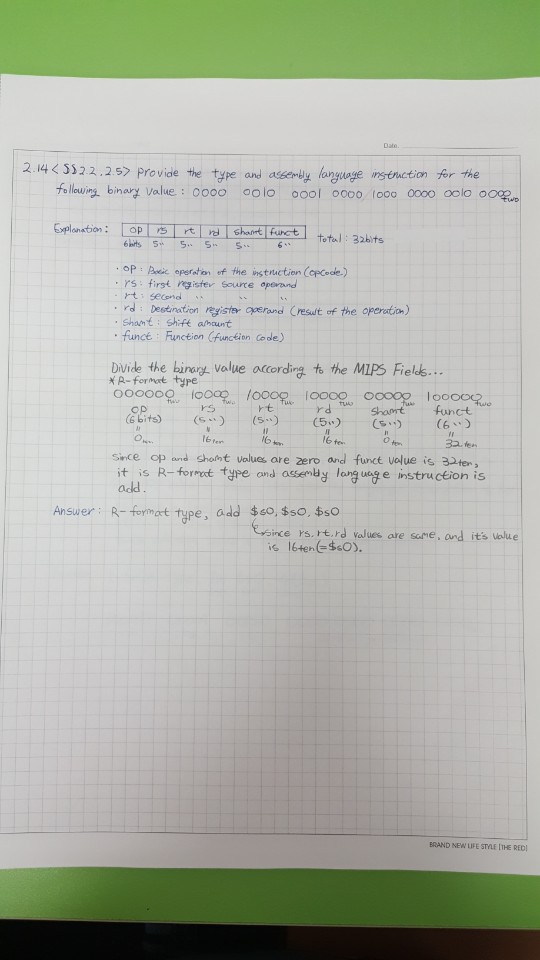 Date.
2.14 < §§2.2, 2.5> Provide the type and assembly language instruction for the
following binary value : 0000 0010 0001 0000 1000 0000 0010 0000two
Explanation : op rs rt rd shamt funct Total : 32bits
6bits 5〃 5〃 5〃 5〃 6〃
· op : Basic operation of the instruction (opcode.)
· rs : first register source operand
· rt : second 〃 〃 〃
· rd : Destination register operand (result of the operation)
· shamt : Shift amount
· funct : Function (function code)
Divide the binary value according to the MIPS Fields...
* R-format type
000000two 10000two 10000two 10000two 00000two 100000two
op rs rt rd shamt funct
(6bits) (5〃) (5〃) (5〃) (5〃) (6〃)
= = = = = =
0ten 16ten 16ten 16ten 0ten 32ten
Since op and shamt values are zero and funct value is 32ten,
it is R-format type and assembly language instruction is
add.
Answer : R-format type, add $s0, $s0, $s0
since rs, rt, rd values are same, and it's value
is 16ten(=$s0).
BRAND NEW LIFE STYLE [THE RED]